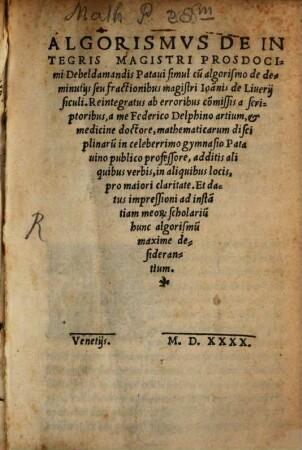 Math P. 28m
ALGORISMVS DE IN
TEGRIS MAGISTRI PROSDOCI
mi Debeldamandis Pataui simul cū algorismo de de
minutijs seu fractionibus magistri Ioānis de Liuerij
siculi. Reintegratus ab erroribus cōmissis a scri
ptoribus, a me Federico Delphino artium, &
medicine doctore, mathematicarum disci
plinarū in celeberrimo gymnasio Pata
uino publico professore, additis ali
quibus verbis, in aliquibus locis,
pro maiori claritate. Et da-
tus impressioni ad instā
tiam meoꝝ scholariū
hunc algorismū
maxime de-
sideran-
tium.
R
Venetijs. M. D. XXXX.